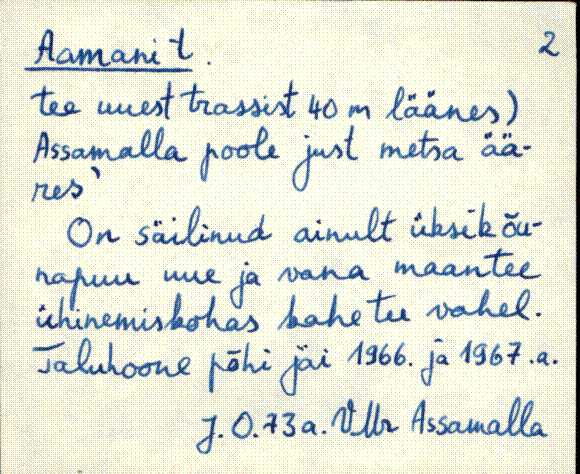 Aamani t. 2
tee uuest trassist 40 m läänes)
Assamalla poole just metsa ää-
res`
On säilinud ainult üksik õu-
napuu uue ja vana maantee
ühinemiskohas kahe tee vahel.
Taluhoone põhi jäi 1966. ja 1967.a.
J.O.73a. VMr Assamalla